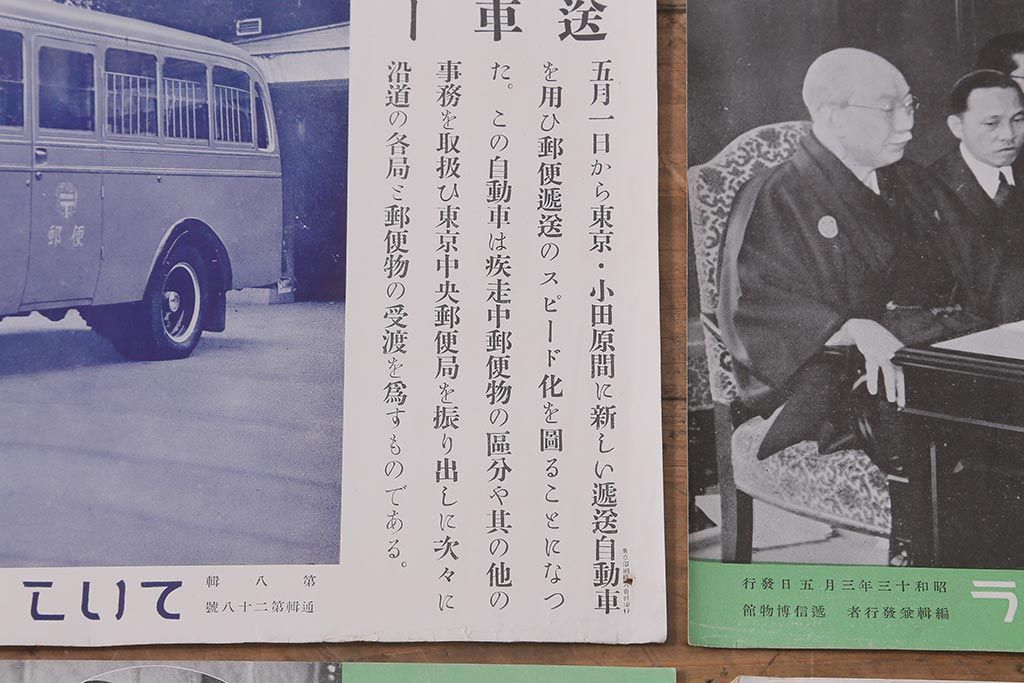 送
車
ー
五月一日から東京・小田原間に新しい遞送自動車
を用ひ郵便遞送のスピード化を圖ることになつ
た。この自動車は疾走中郵便物の區分や其の他の
事務を取扱ひ東京中央郵便局を振り出しに次々に
沿道の各局と郵便物の受渡を爲すものである。
郵便
輯八第
號八十二第輯通
こいて
行發日五月三年三十和昭
館物博信遞 者行發兼輯編
ラ